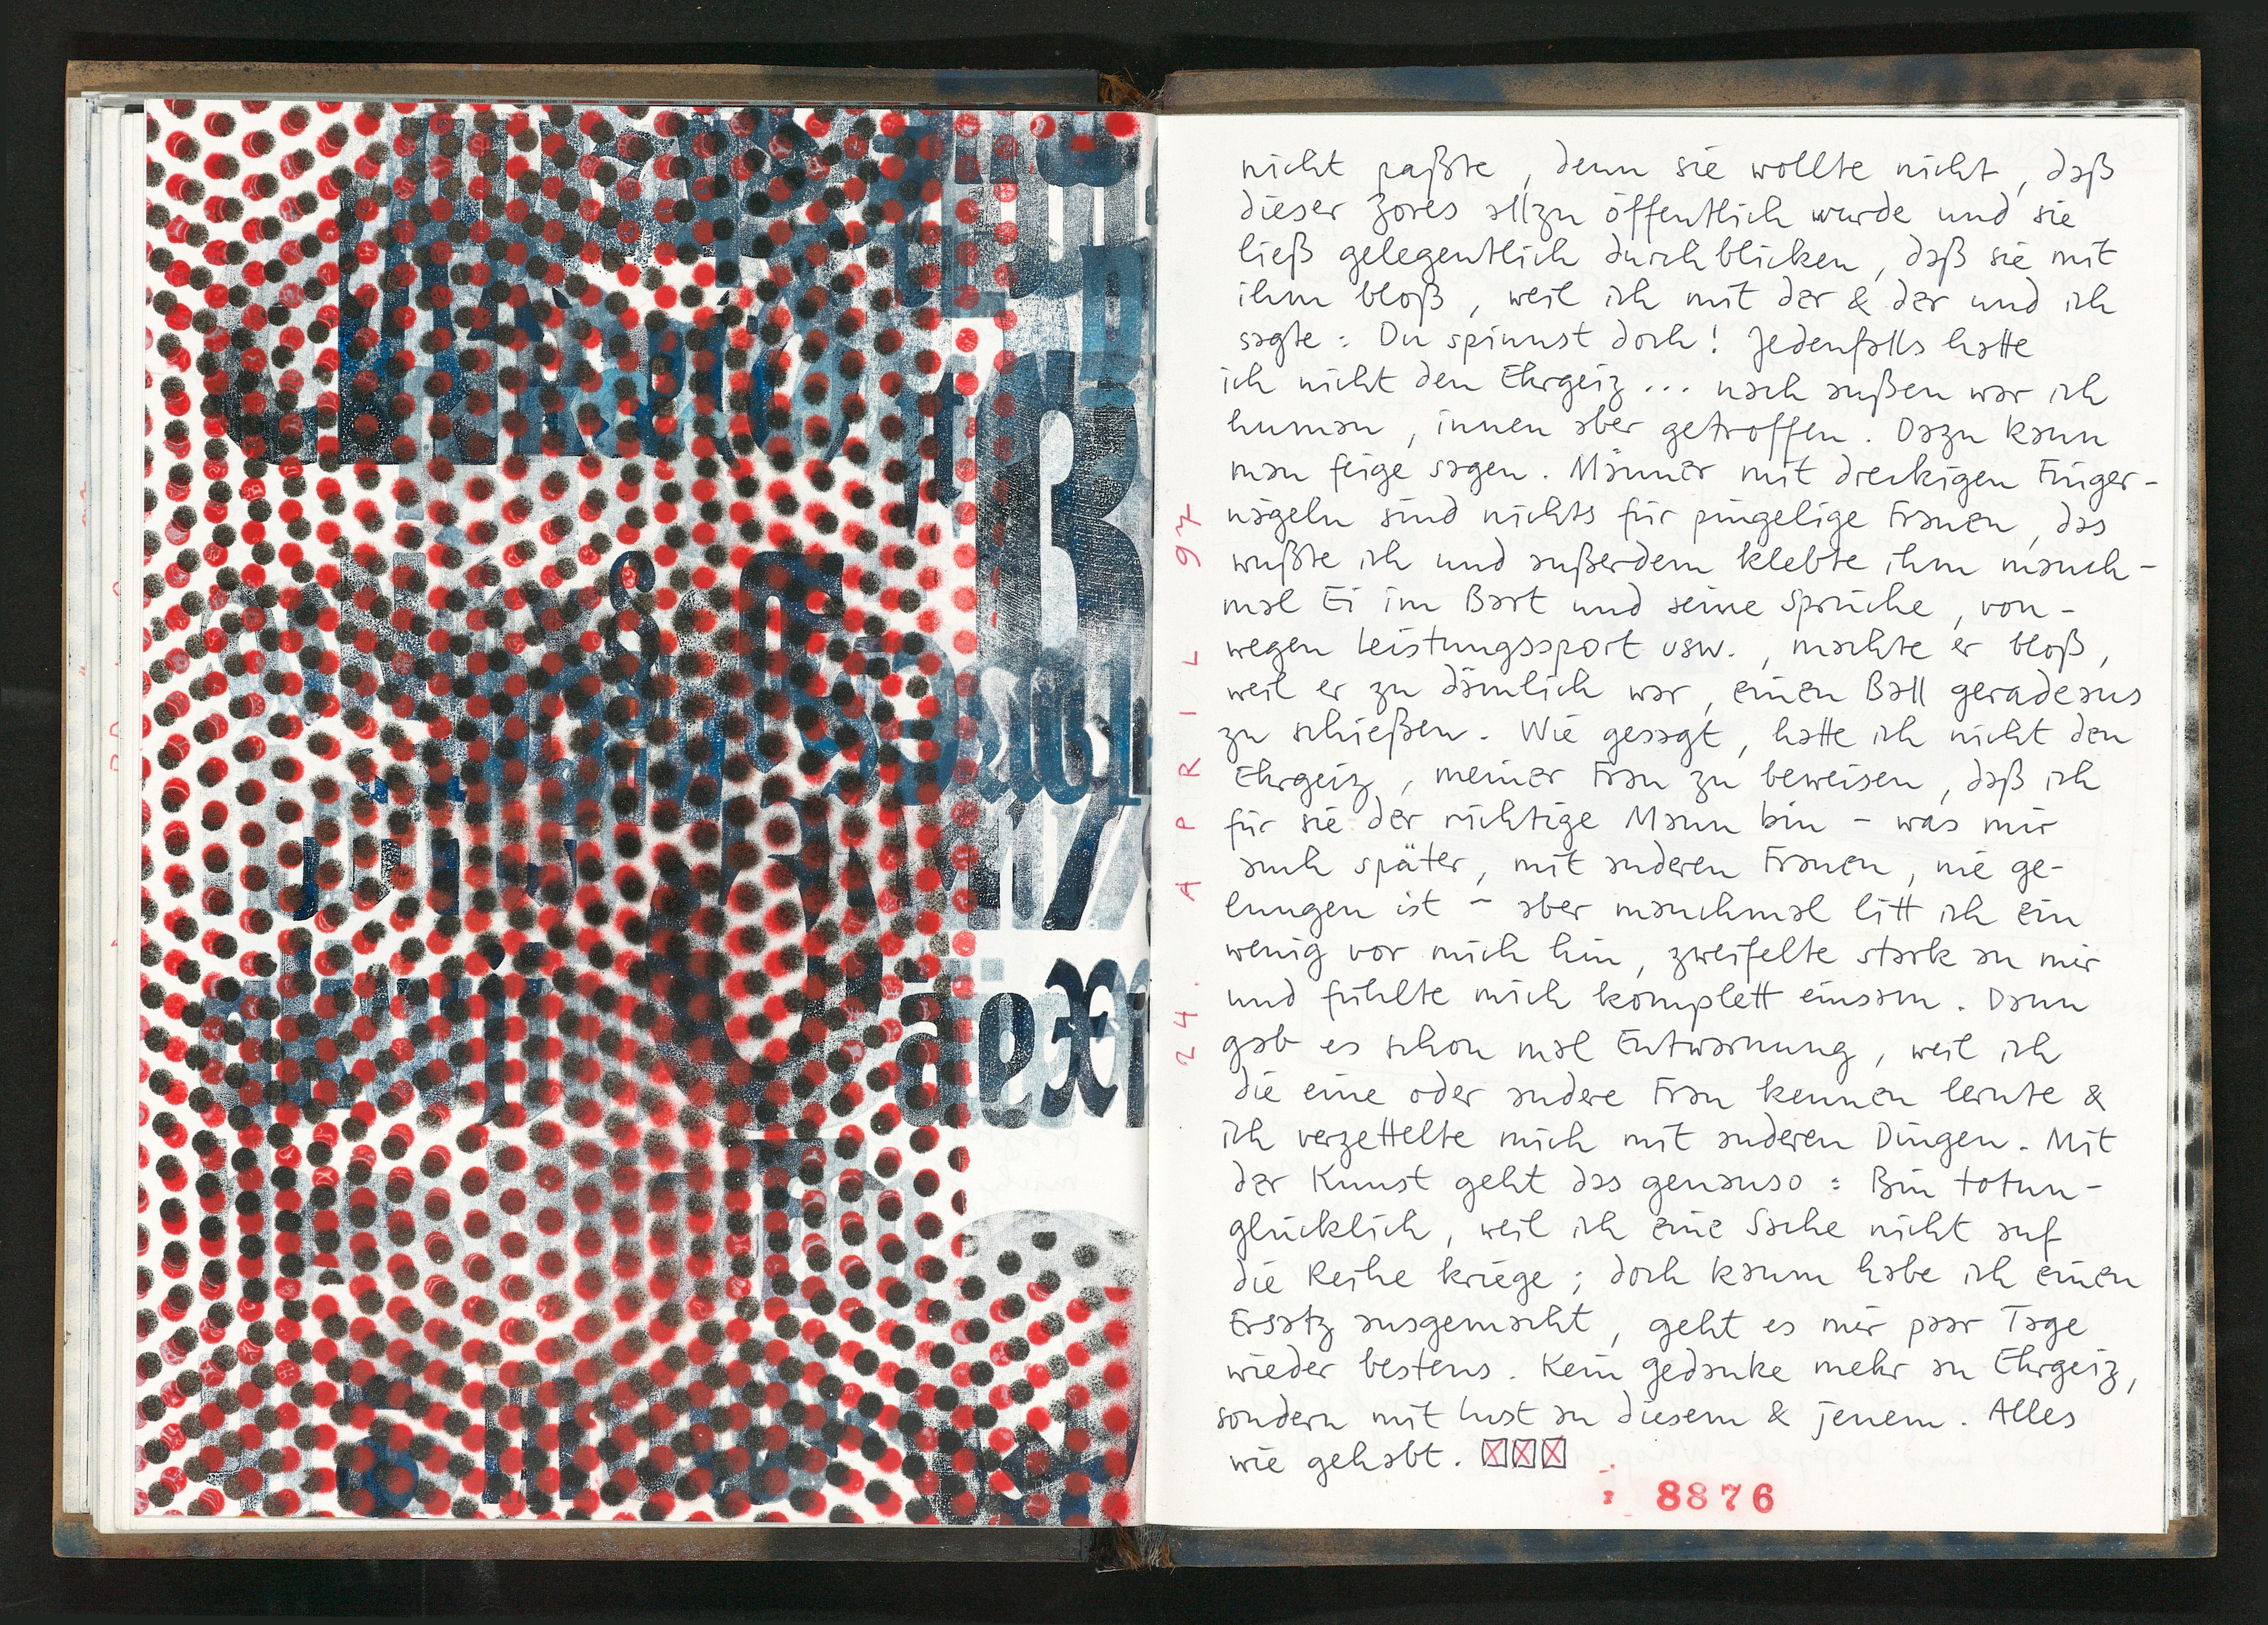 nicht paßte, denn sie wollte nicht, daß
dieser Zores allzu öffentlich wurde und sie
ließ gelegentlich durchblicken, daß sie mit
ihm bloß, weil ich mit der & der und ich
sagte: Du spinnst doch! Jedenfalls hatte
ich nicht den Ehrgeiz... nach außen war ich
human, innen aber getroffen. Dazu kann
man feige sagen. Männer mit dreckigen Finger-
nägeln sind nichts für pingelige Frauen, das
wußte ich und außerdem klebte ihm manch-
mal Ei im Bart und seine Sprüche, von-
wegen Leistungssport usw., machte er bloß,
weil er zu dämlich war, einen Ball geradeaus
zu schießen. Wie gesagt, hatte ich nicht den
Ehrgeiz, meiner Frau zu beweisen, daß ich
für sie der richtige Mann bin - was mir
auch später, mit anderen Frauen, nie ge-
lungen ist - aber manchmal litt ich ein
wenig vor mich hin, zweifelte stark an mir
und fühlte mich komplett einsam. Dann
gab es schon mal Entwarnung, weil ich
die eine oder andere Frau kennen lernte &
ich verzettelte mich mit anderen Dingen. Mit
der Kunst geht das genauso: Bin totun-
glücklich, weil ich eine Sache nicht auf
die Reihe kriege; doch kaum habe ich einen
Ersatz ausgemacht, geht es mir paar Tage
wieder bestens. Kein Gedanke mehr an Ehrgeiz,
sondern mit Lust an diesem & jenem. Alles
wie gehabt.
8876
24. APRIL 97